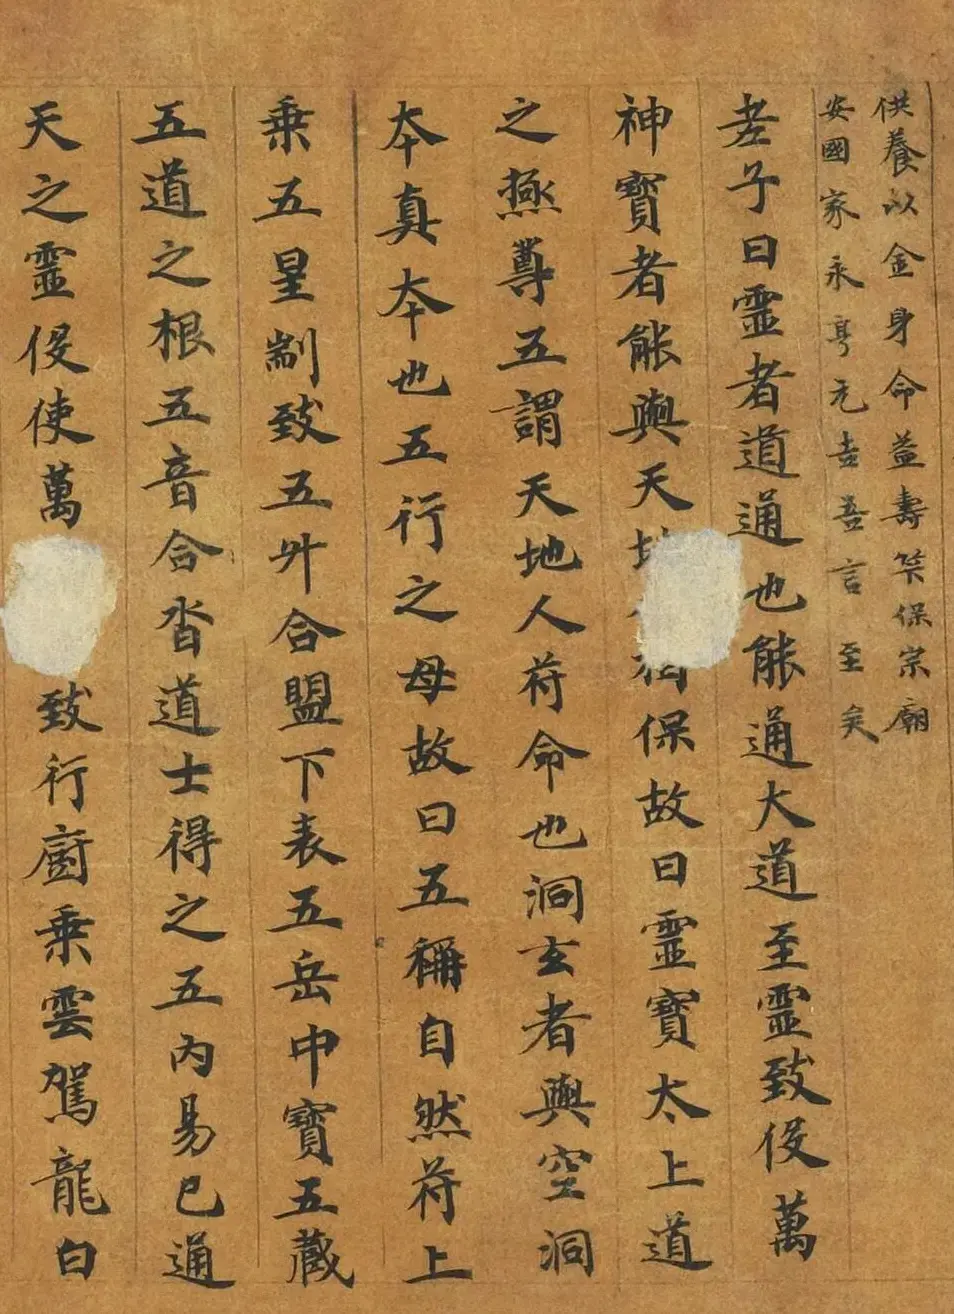 供養以金身命益壽筭保宗廟
安國家永亨元吉吾言至矣
老子曰靈者道通也能通大道至靈致伇萬
神寶者能與天保故曰靈寶太上道
之極尊五謂天地人符命也洞玄者與空洞
夲真夲也五行之母故曰五稱自然符上
乘五星剬致五斗合盟下表五岳中寶五藏
五道之根五音合沓道士得之五內易已通
天之靈伇使萬致行廚乘雲駕龍白